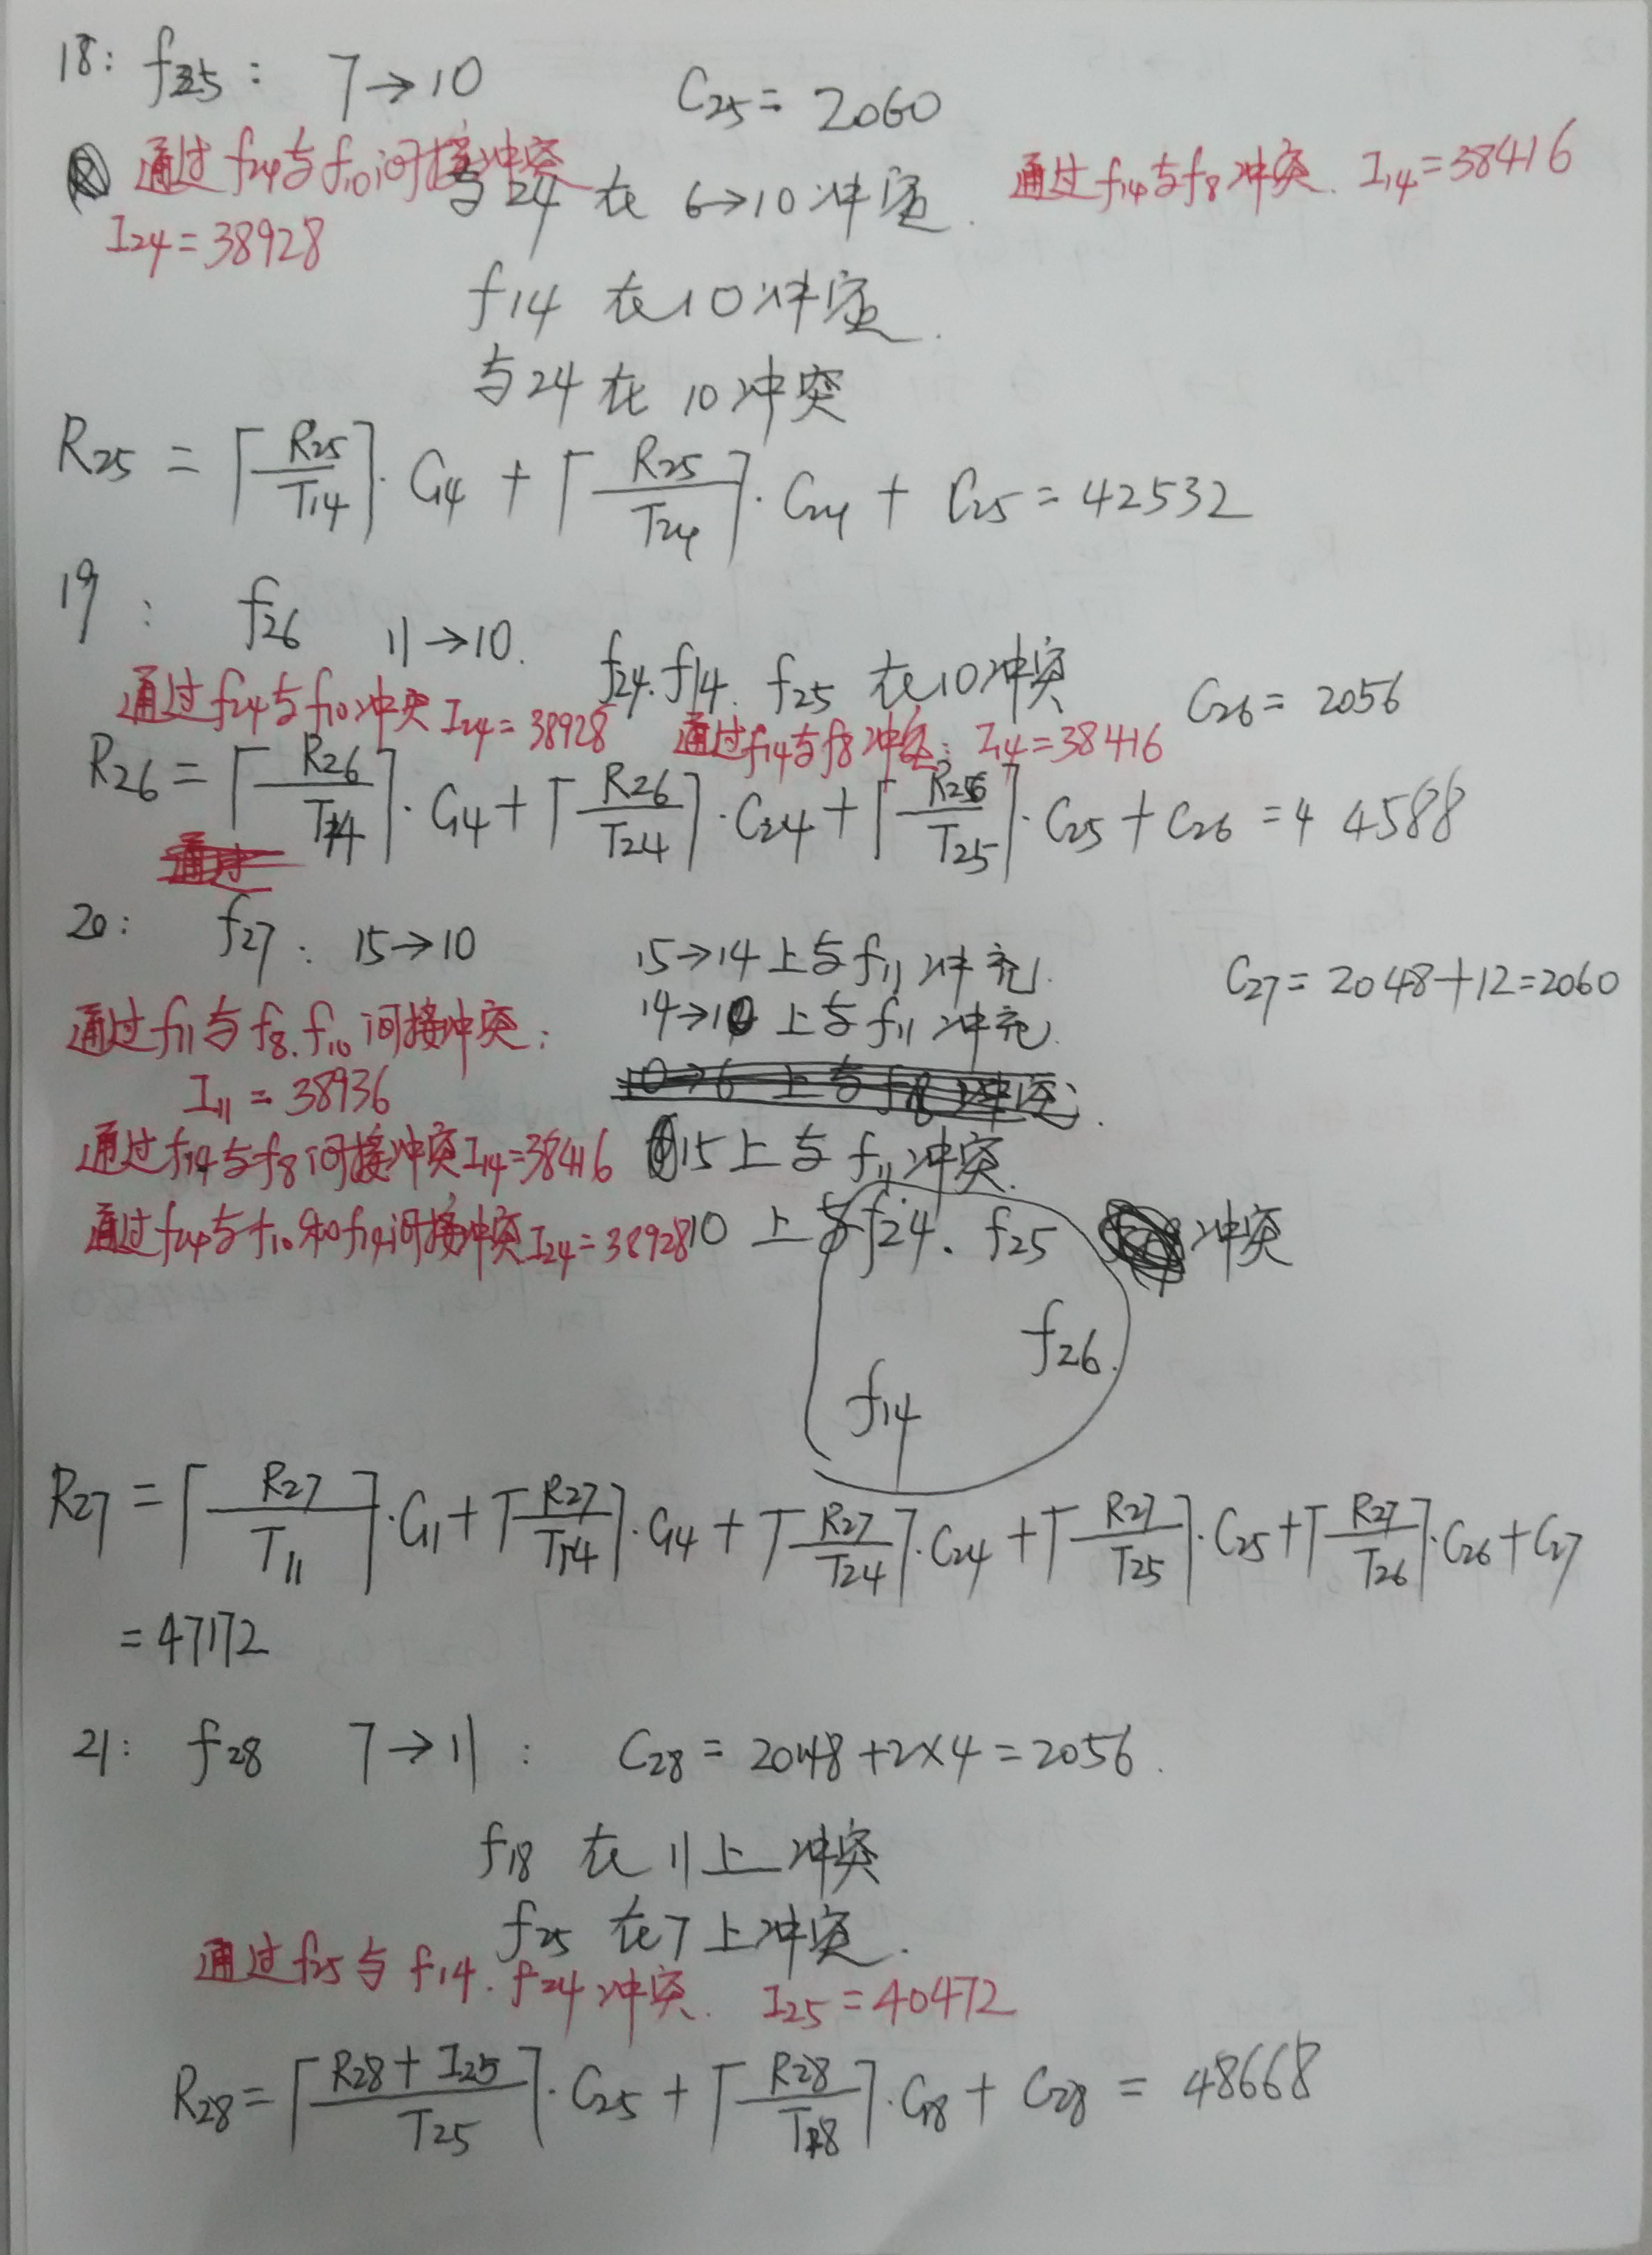 18: f25: 7→10 C25=2060
通过f24与f10间接冲突 与24在6→10冲突. 通过f14与f8冲突. I14=38416
I24=38928
f14 在10冲突.
与24在 10冲突
R25 = ⌈R25/T14⌉·C14 + ⌈R25/T24⌉·C24 + C25 = 42532
19: f26 11→10. f24. f14. f25 在10冲突 C26=2056
通过f24与f10冲突 I24=38928 通过f14与f8冲突: I14=38416
R26 = ⌈R26/T14⌉·C14 + ⌈R26/T24⌉·C24 + ⌈R26/T25⌉·C25 + C26 = 44588
20: f27: 15→10 15→14上与f11冲突. C27=2048+12=2060
通过f11与f8.f10间接冲突: 14→10上与f11冲突.
I11=38936
通过f14与f8间接冲突I14=38416 15上与f11冲突.
通过f24与f10和f14间接冲突I24=38928 10上与f24. f25 冲突
f26.
f14
R27 = ⌈R27/T11⌉·C11 + ⌈R27/T14⌉·C14 + ⌈R27/T24⌉·C24 + ⌈R27/T25⌉·C25 + ⌈R27/T26⌉·C26 + C27
=47172
21: f28 7→11: C28=2048+2×4=2056.
f18 在11上冲突
f25 在7上冲突.
通过f25与f14.f24冲突. I25=40472
R28 = ⌈R28+I25/T25⌉·C25 + ⌈R28/T18⌉·C18 + C28 = 48668